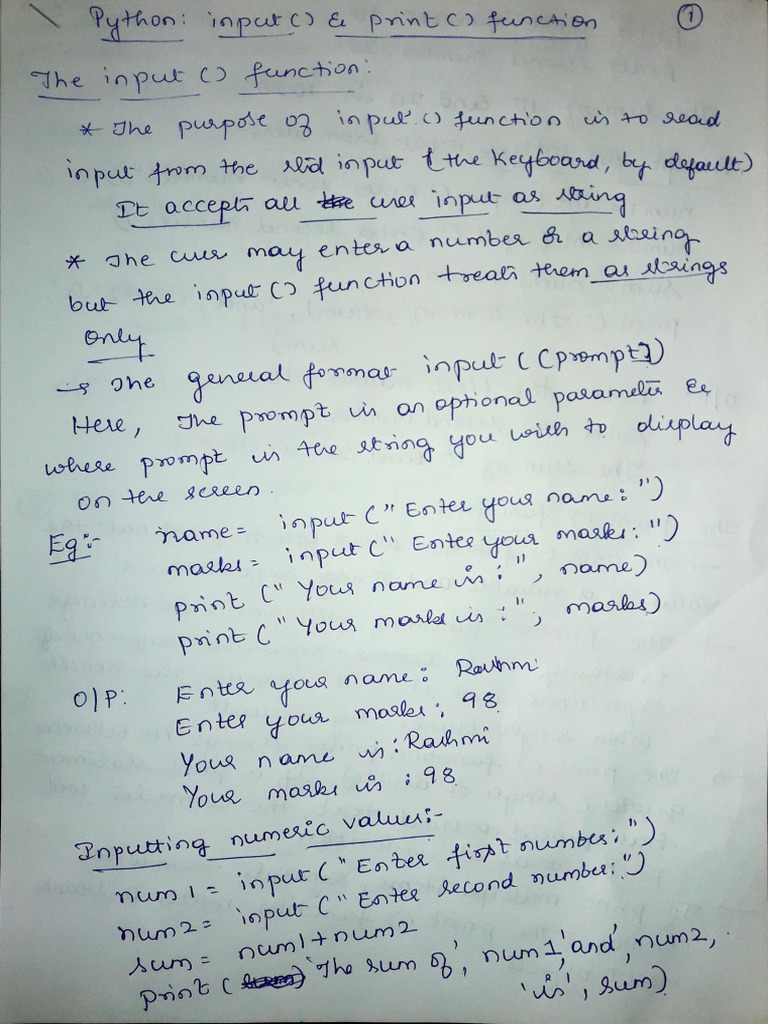 Python: input() & print() function
1
The input() function:
* The purpose of input() function is to read
input from the std input (the Keyboard, by default)
It accepts all user input as string
* The user may enter a number & a string
but the input() function treats them as strings
Only
→ The general format input((prompt])
Here, The prompt is an optional parameter &
where prompt is the string you wish to display
on the screen.
Eg:- name= input("Enter your name: ")
marks= input("Enter your marks: ")
print("Your name is: ", name)
print("Your marks is : ", marks)
O/P: Enter your name: Rashmi
Enter your marks: 98
Your name is: Rashmi
Your marks is : 98
Inputting numeric values:-
num1= input("Enter first number: ")
num2= input("Enter second number: ")
sum= num1+num2
print( 'The sum of', num1,'and', num2,
'is', sum)